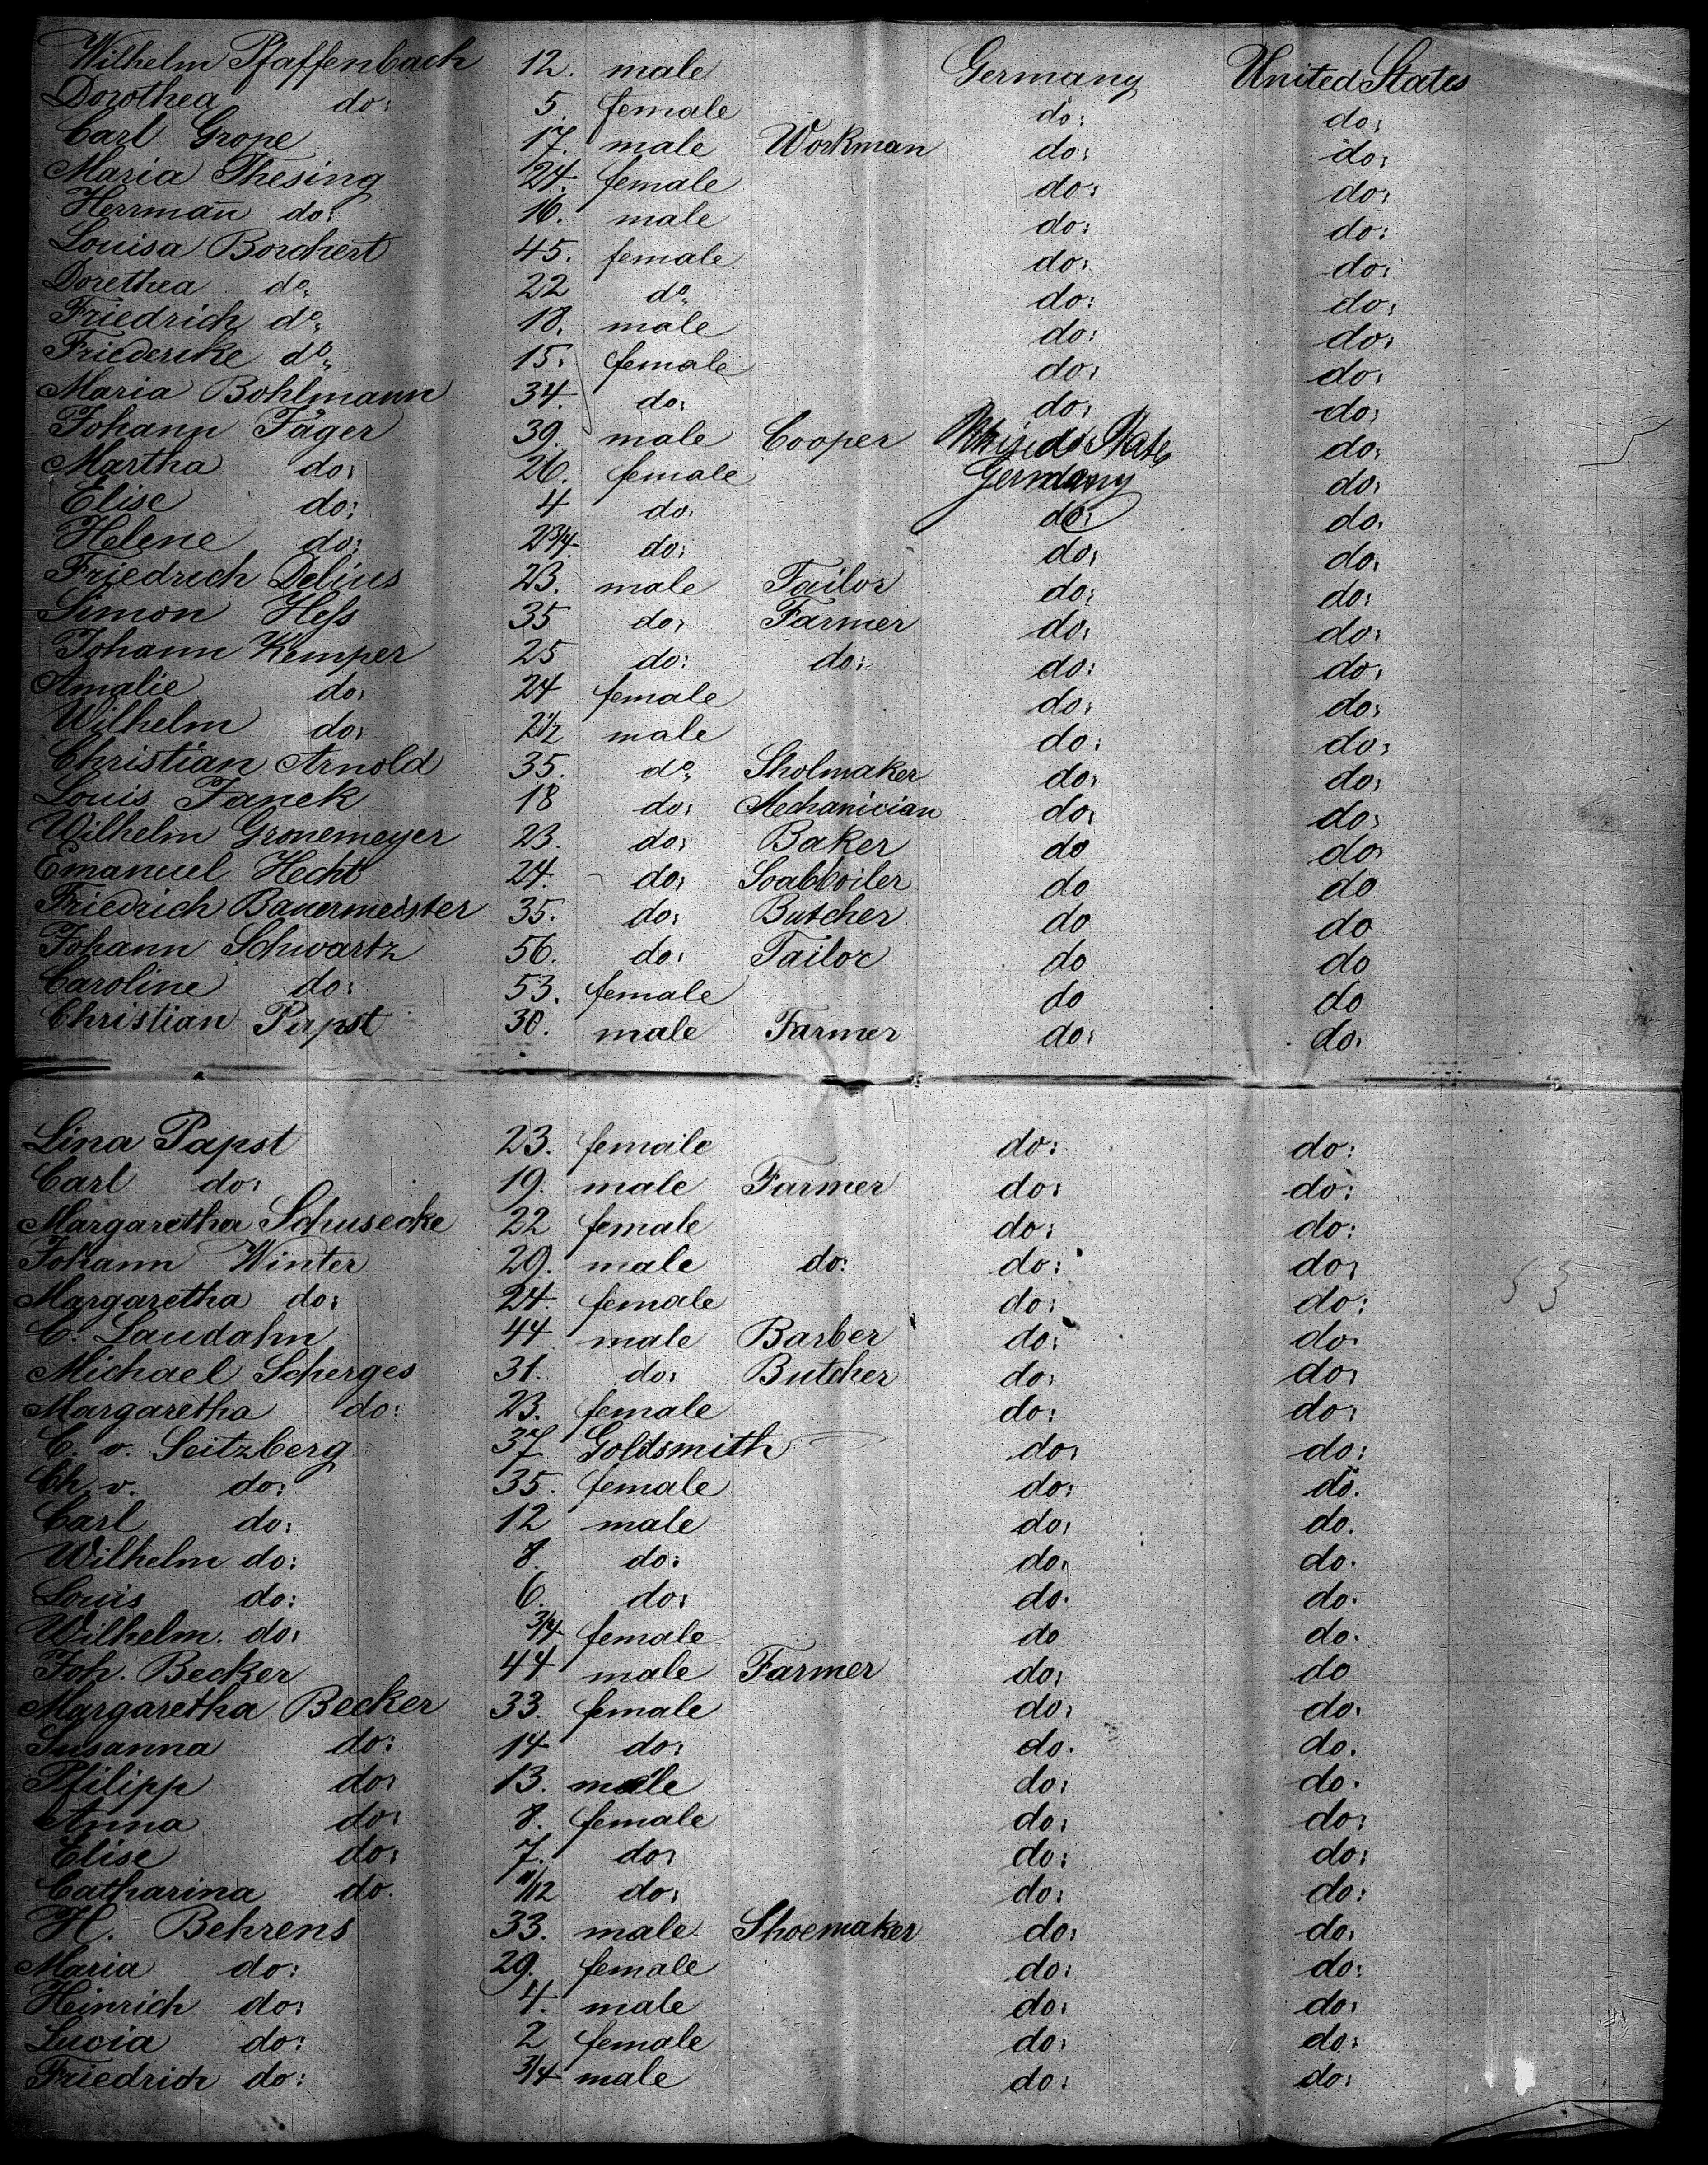 Wilhelm Pfaffenbach 12. male Germany United States
Dorothea do: 5. female do: do:
Carl Grope 17. male Workman do: do:
Maria Thesing 24. female do: do:
Herrmañ do: 16. male do: do:
Louisa Borchert 45. female do: do:
Dorethea do 22 do do: do:
Friedrich do 18. male do: do:
Friedericke do 15. female do: do:
Maria Bohlmann 34. do: do: do:
Johann Jäger 39. male Cooper United States do:
Martha do: 26. female Germany do:
Elise do: 4 do. do: do.
Helene do: 2 3/4. do: do: do.
Friedrich Delius 23. male Tailor do: do:
Simon Hess 35 do: Farmer do: do:
Johann Kemper 25 do: do: do: do:
Amalie do: 24 female do: do:
Wilhelm do: 2 1/2 male do: do:
Christian Arnold 35. do Sholmaker do: do:
Louis Janek 18 do: Mechanician do: do:
Wilhelm Gronemeyer 23. do: Baker do do
Emanuel Hecht 24. do: Soabboiler do do
Friedrich Bauermeister 35. do: Butcher do do
Johann Schwartz 56. do: Tailor do do
Caroline do: 53. female do do
Christian Papst 30. male Farmer do: do.
Lina Papst 23. female do: do:
Carl do: 19. male Farmer do: do:
Margaretha Schusecke 22 female do: do:
Johann Winter 29. male do: do: do:
Margaretha do: 24. female do: do:
C. Laudahn 44 male Barber do: do.
Michael Scherges 31. do: Butcher do: do:
Margaretha do: 23. female do: do:
C. v. Seitzberg 37 Goldsmith do: do:
Ch. v. do: 35. female do: do.
Carl do: 12 male do: do.
Wilhelm do: 8. do: do: do.
Louis do: 6. do: do. do.
Wilhelm. do: 3/4 female do do.
Joh. Becker 44 male Farmer do: do
Margaretha Becker 33. female do: do.
Susanna do: 14 do: do. do.
Philipp do: 13. male do: do.
Anna do: 8. female do: do:
Elise do: 7. do: do: do:
Catharina do. 11/12 do: do: do:
H. Behrens 33. male Shoemaker do: do.
Maria do: 29. female do: do:
Heinrich do: 4. male do: do:
Lucia do: 2 female do: do:
Friedrich do: 3/4 male do: do: